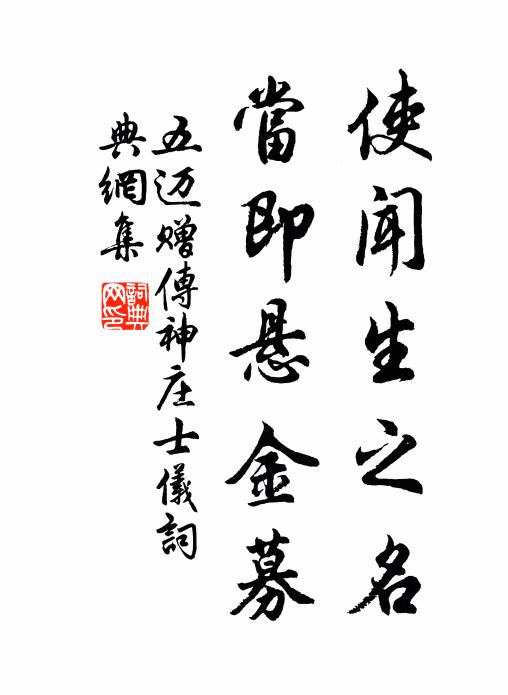 使聞生之名
當即悬金募
五迈赠傳神庄士儀詞
典網集
詞典网印